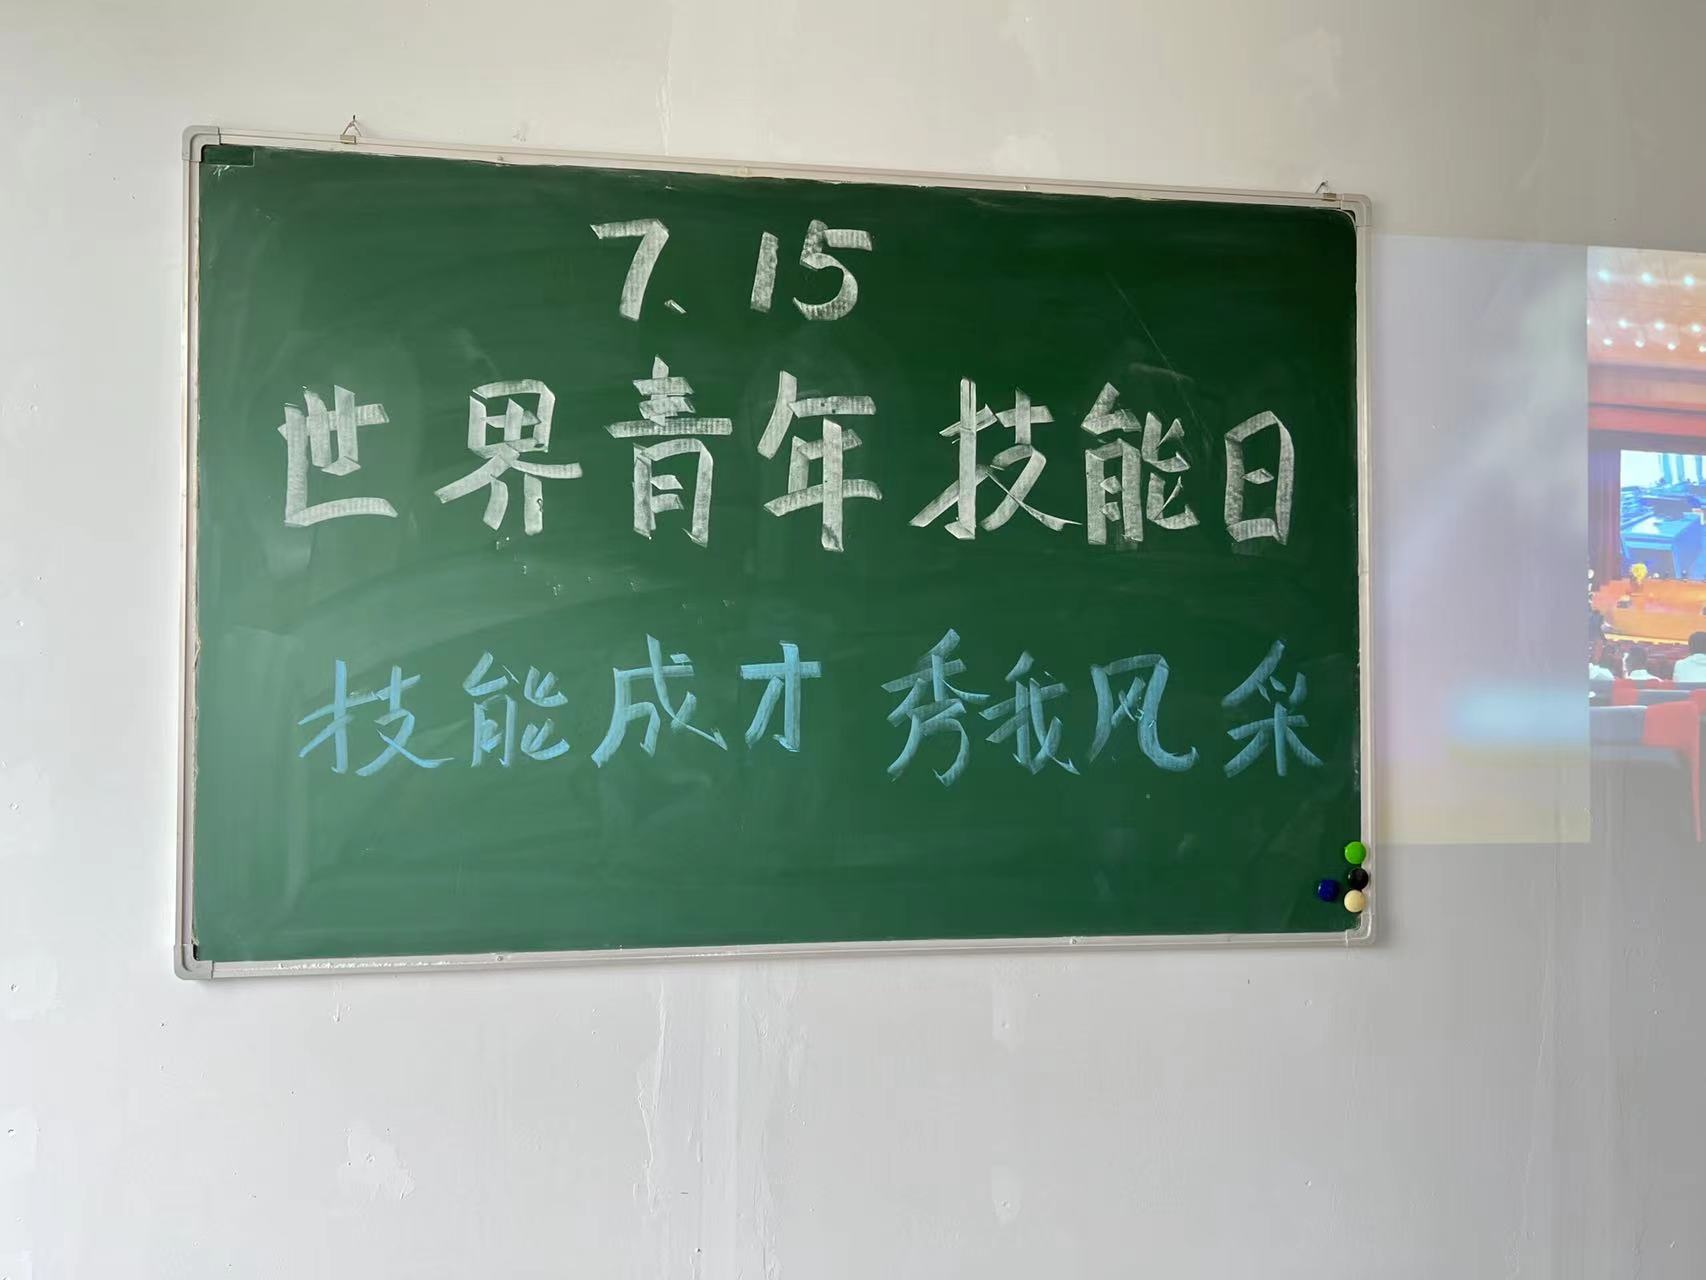 7、15
世界青年技能日
技能成才 秀我风采